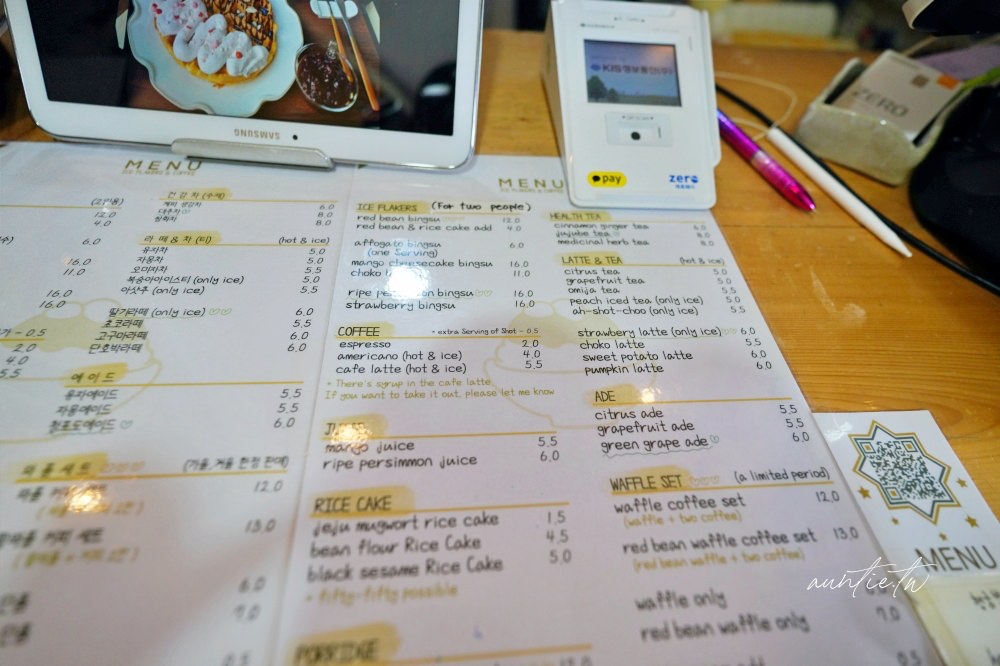 SAMSUNG
KIS정보통신(주)
pay
zero
ZERO
MENU
ICE FLAKERS & COFFEE
(2인용)
12.0
4.0
6.0
16.0
11.0
16.0
16.0
- 0.5
2.0
4.0
5.5
건강차 (수제)
계피 생강차 6.0
대추차♡ 8.0
쌍화차 8.0
라떼&차 (티) (hot & ice)
유자차 5.0
자몽차 5.0
오미자차 5.5
복숭아아이스티 (only ice) 5.0
아샷추 (only ice) 5.5
딸기라떼 (only ice) ♡♡ 6.0
초코라떼 5.5
고구마라떼 6.0
단호박라떼 6.0
에이드
유자에이드 5.5
자몽에이드 5.5
청포도에이드♡ 6.0
와플세트 ♡♡♡ (가을, 겨울 한정 판매)
12.0
13.0
6.0
7.0
MENU
ICE FLAKERS & COFFEE
ICE FLAKERS (For two people)
red bean bingsu 12.0
red bean & rice cake add 4.0
affogato bingsu 6.0
(one Serving)
mango cheesecake bingsu 16.0
choko 11.0
ripe persimmon bingsu♡♡ 16.0
strawberry bingsu 16.0
COFFEE * extra Serving of Shot - 0.5
espresso 2.0
americano (hot & ice) 4.0
cafe latte (hot & ice) 5.5
* There's syrup in the cafe latte
If you want to take it out, please let me know
JUICES
mango juice 5.5
ripe persimmon juice 6.0
RICE CAKE
jeju mugwort rice cake 1.5
bean flour Rice Cake 4.5
black sesame Rice Cake 5.0
* fifty-fifty possible
PORRIDGE
HEALTH TEA
cinnamon ginger tea 6.0
jujube tea♡ 8.0
medicinal herb tea 8.0
LATTE & TEA (hot & ice)
citrus tea 5.0
grapefruit tea 5.0
omija tea 5.5
peach iced tea (only ice) 5.0
ah-shot-choo (only ice) 5.5
strawberry latte (only ice)♡♡ 6.0
choko latte 5.5
sweet potato latte 6.0
pumpkin latte 6.0
ADE
citrus ade 5.5
grapefruit ade 5.5
green grape ade♡ 6.0
WAFFLE SET ♡♡♡ (a limited period)
waffle coffee set 12.0
(waffle + two coffee)
red bean waffle coffee set 13.0
(red bean waffle + two coffee)
waffle only
red bean waffle only 7.0
MENU
auntie.tw